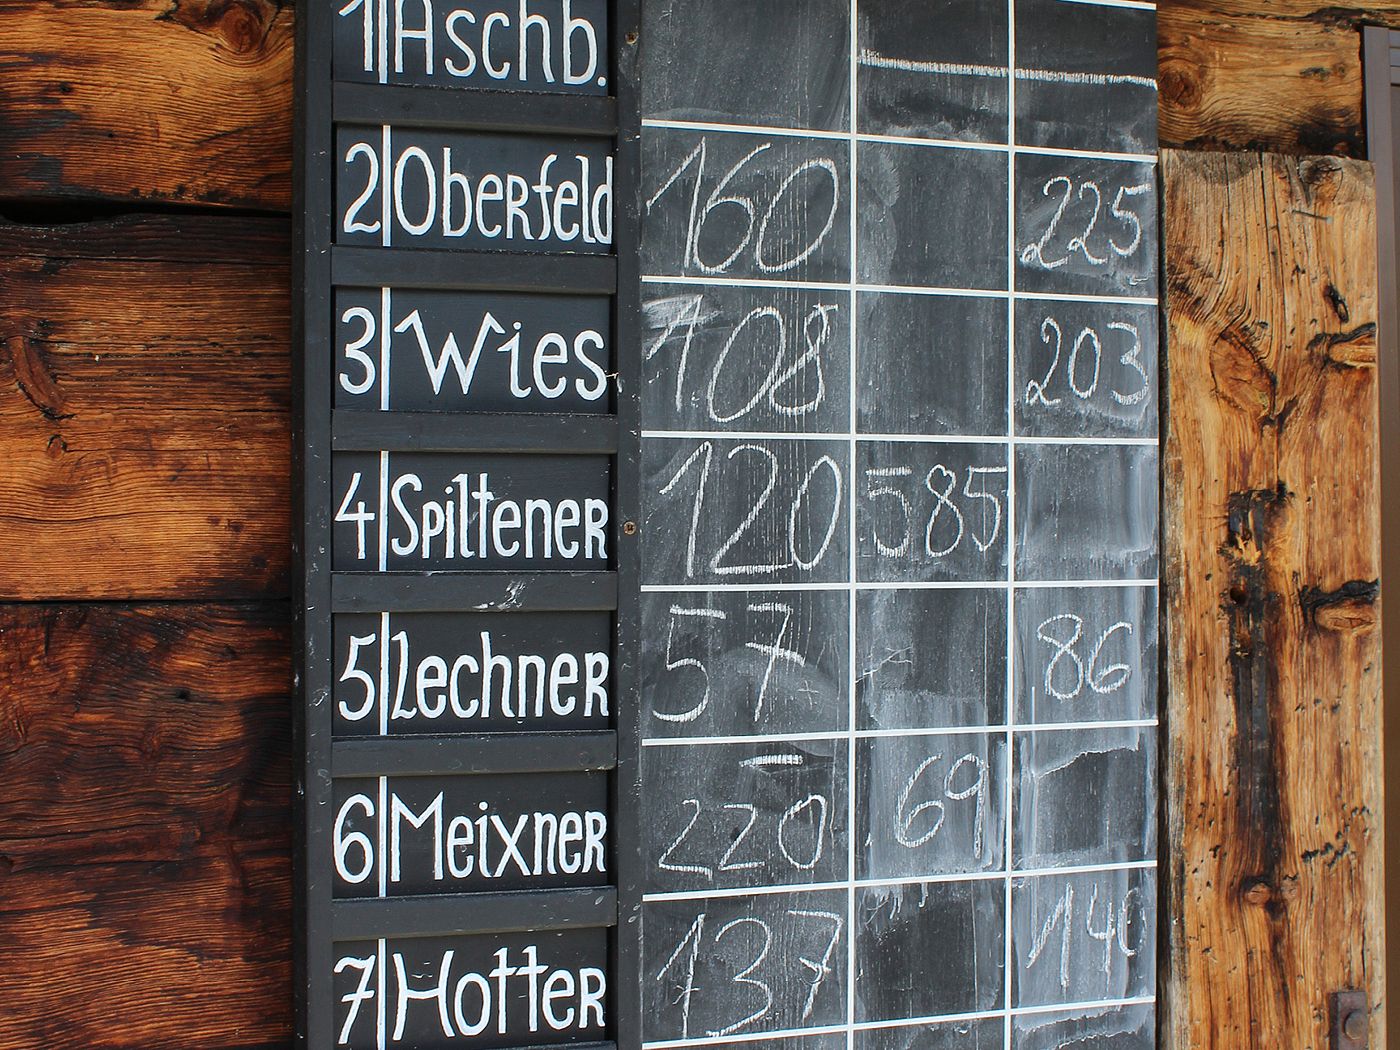 1 Aschb.
2 Oberfeld 160 225
3 Wies 108 203
4 Spiltener 120 585
5 Lechner 57 86
6 Meixner 220 69
7 Hotter 137 140